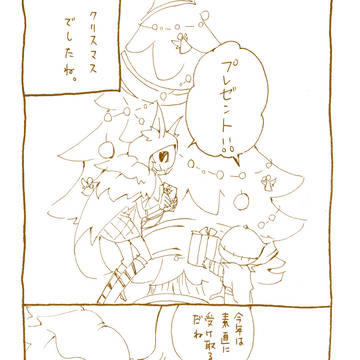 クリスマス
でしたね。
プレゼント!!
今年は
素直に
受け取る
だね